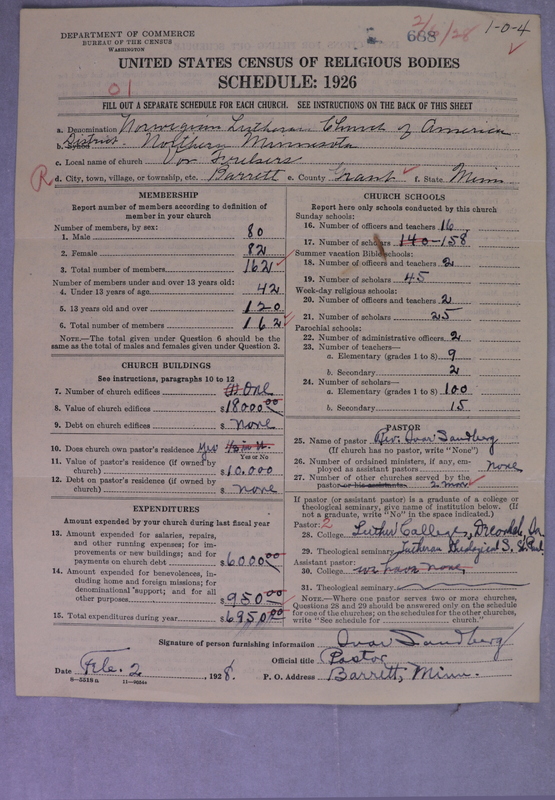 DEPARTMENT OF COMMERCE
BUREAU OF THE CENSUS
WASHINGTON
668
2/6/28
1-0-4
UNITED STATES CENSUS OF RELIGIOUS BODIES
SCHEDULE: 1926
01
FILL OUT A SEPARATE SCHEDULE FOR EACH CHURCH. SEE INSTRUCTIONS ON THE BACK OF THIS SHEET
a. Denomination Norwegian Lutheran Church of America
b. District. Northern Minnesota
c. Local name of church Vor Frelsers
R d. City, town, village, or township, etc. Barrett e. County Grant f. State Minn
MEMBERSHIP
Report number of members according to definition of
member in your church
Number of members, by sex:
1. Male 80
2. Female 82
3. Total number of members 162
Number of members under and over 13 years old:
4. Under 13 years of age 42
5. 13 years old and over 120
6. Total number of members 162
NOTE.—The total given under Question 6 should be the
same as the total of males and females given under Question 3.
CHURCH BUILDINGS
See instructions, paragraphs 10 to 12
7. Number of church edifices (1) One
8. Value of church edifices $18000.00
9. Debt on church edifices $ none
10. Does church own pastor's residence? Yes
Yes or No
11. Value of pastor's residence (if owned by
church) $10.000
12. Debt on pastor's residence (if owned by
church) $ none
EXPENDITURES
Amount expended by your church during last fiscal year
13. Amount expended for salaries, repairs,
and other running expenses; for im-
provements or new buildings; and for
payments on church debt $6000.00
14. Amount expended for benevolences, in-
cluding home and foreign missions; for
denominational support; and for all
other purposes $950.00
15. Total expenditures during year $6950.00
CHURCH SCHOOLS
Report here only schools conducted by this church
Sunday schools:
16. Number of officers and teachers 16
17. Number of scholars 140-158
Summer vacation Bible schools:
18. Number of officers and teachers 2
19. Number of scholars 45
Week-day religious schools:
20. Number of officers and teachers 2
21. Number of scholars 25
Parochial schools:
22. Number of administrative officers 2
23. Number of teachers—
a. Elementary (grades 1 to 8) 9
b. Secondary 2
24. Number of scholars—
a. Elementary (grades 1 to 8) 100
b. Secondary 15
PASTOR
25. Name of pastor Rev. Ivar Sandberg
(If church has no pastor, write "None")
26. Number of ordained ministers, if any, em-
ployed as assistant pastors none
27. Number of other churches served by the
pastor or his assistants 2 more
If pastor (or assistant pastor) is a graduate of a college or
theological seminary, give name of institution below. (If
not a graduate, write "No" in the space indicated.)
Pastor: 2
28. College Luther College, Decorah, Ia
29. Theological seminary Lutheran Theological S. St. Paul
Assistant pastor:
30. College we have none
31. Theological seminary
NOTE.—Where one pastor serves two or more churches,
Questions 28 and 29 should be answered only on the schedule
for one of the churches; on the schedules for the other churches,
write "See schedule for church."
Signature of person furnishing information Ivar Sandberg
Official title Pastor
Date Feb. 2, 1928. P. O. Address Barrett, Minn.
8-5518a